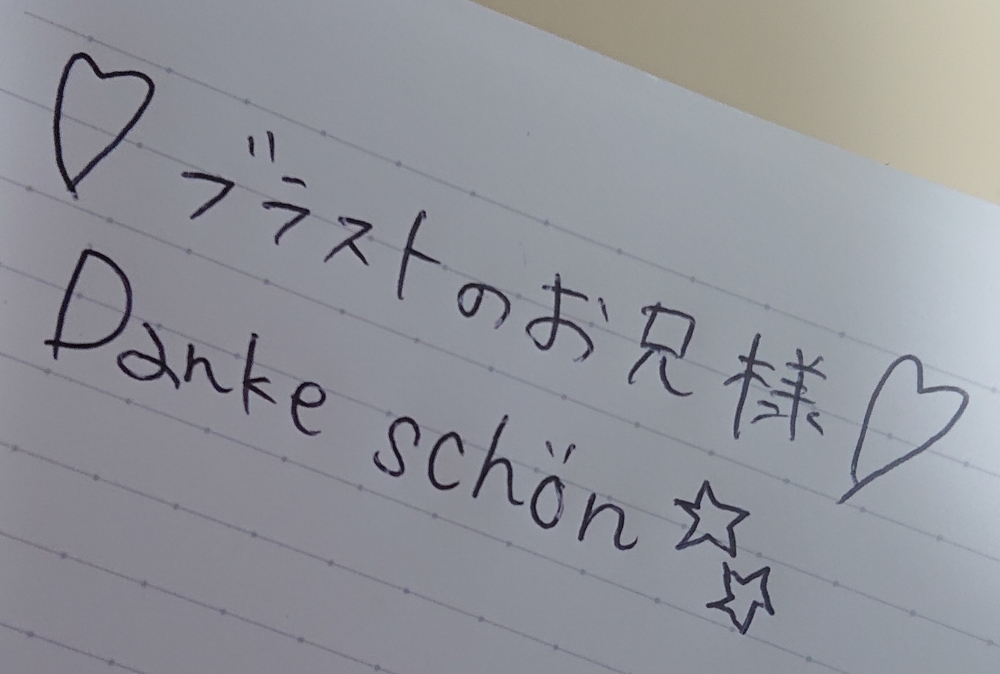 ♡ブラストのお兄様♡
Danke schön☆☆